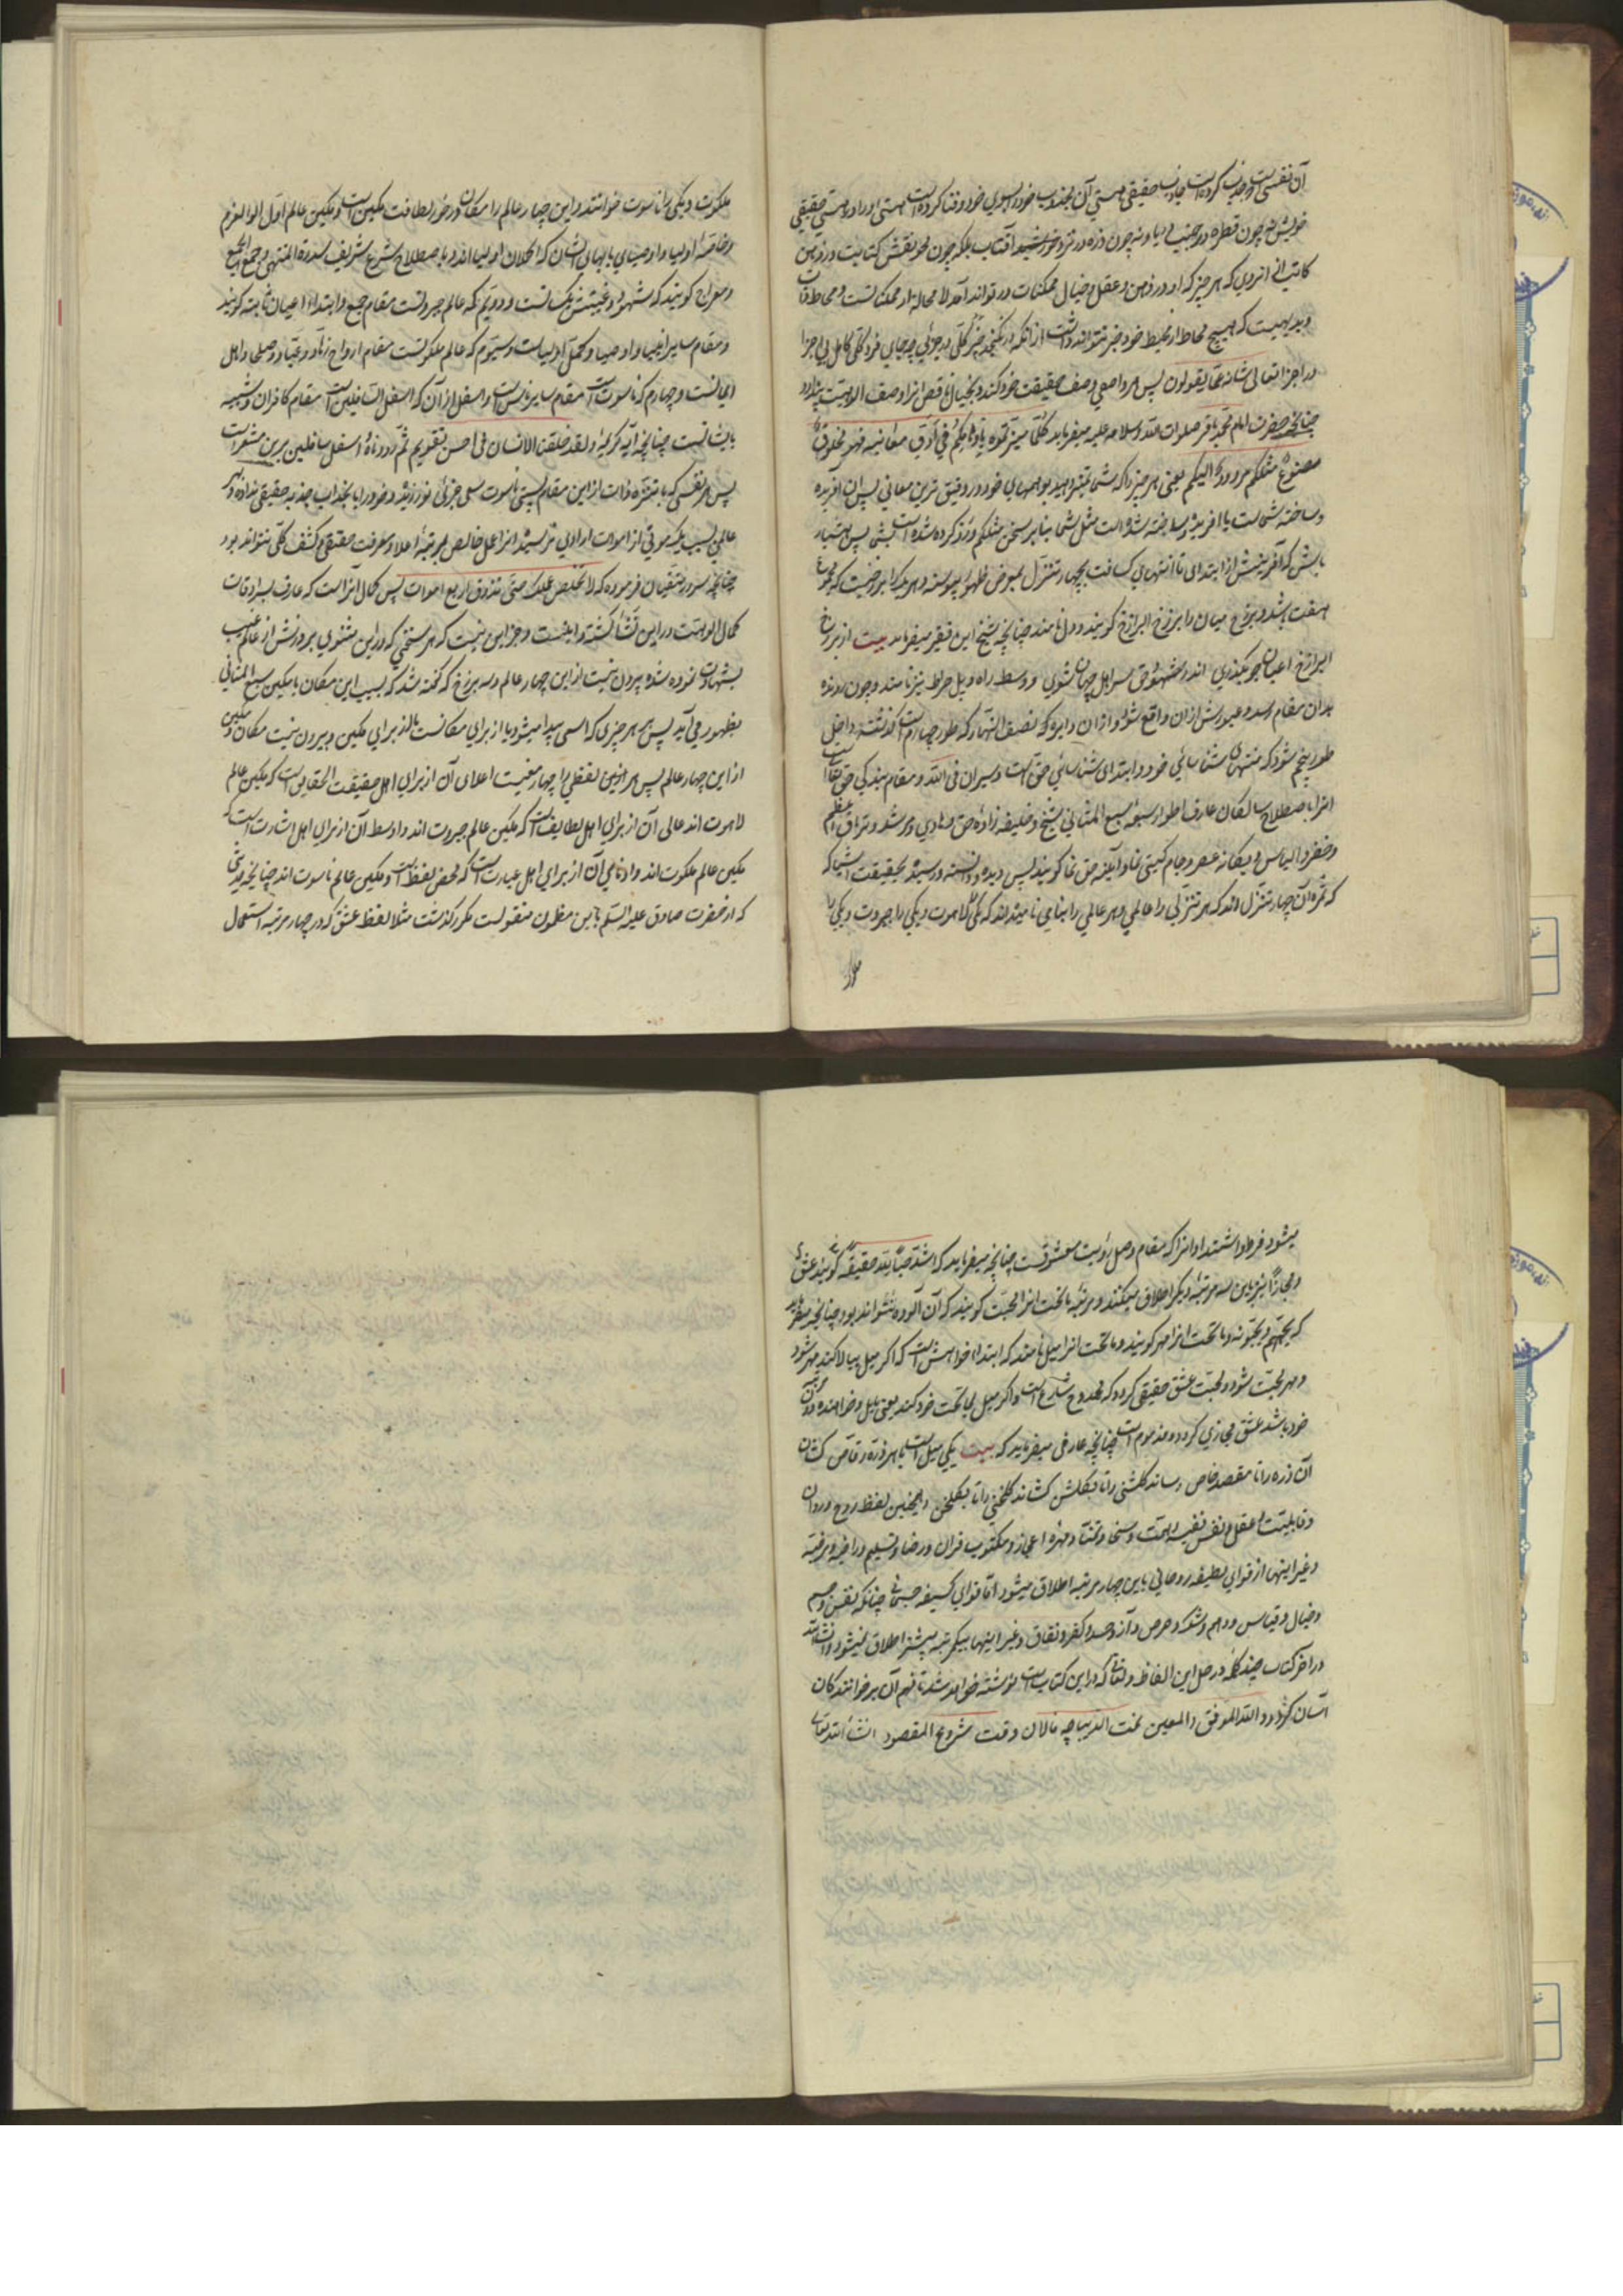 آن نفسی است و جذب کرده است جاذب حقیقی هستی آن مجذوب خود را بسوی خود و فنا کرده است هستی او را در هستی حقیقی
خویش نه چون قطره در جنب دریا و نه چون ذره در نزد خورشید آفتاب بلکه چون محو نقش کتابت در ذهن
کاتب از انروی که هر چیز که او در ذهن و عقل و خیال ممکنات در تواند آمد لا محاله از ممکناتست و محاط
و بدیهیست که هیچ محاط از محیط خود خبر نتواند داشت از آنکه در نکنجد چیز کلی در جزئی چه جای فرد کلی کامل بی اجزا
در اجزا تعالی شانه عما یقولون پس هر واصفی وصف حقیقت خود کند و بخیال ناقص انرا وصف الوهیت پندارد
چنانچه حضرت امام محمد باقر صلوات الله و سلامه علیه میفرماید کلما میزتموه باوهامکم فی ادق معانیه فهو مخلوق
مصنوع مثلکم مردود الیکم یعنی هر چیز را که شما تمیز دهید بوهمهای خود در دقیق ترین معانی پس آن افریده
و ساخته شماست یا افریده و ساخته شده است مثل شما بنابر سخن مثلکم و رد کرده شده است بشما پس هشیار
باش که آفرینش از ابتدای تا انتهای کسافت بچهار تنزل بمعرض ظهور پیوسته و هر یک را برزخیست که مجموع
هفت باشد و برزخ میان را برزخ البرازخ کویند و دل نامند چنانچه شیخ این فقیر میفرماید بیت از برزخ
البرازخ اعیان چو بکذری اندر شهود حق سراهل جهان شوی و وسط راه و پل صراط نیز نامند و چون رونده
بدان مقام رسد و عبورش از ان واقع شود و ازان دایره که نصف النهار که طور چهارم است گذشته داخل
طور پنجم شود که منتهای شناسائی خود و ابتدای شناسائی حق است و سیران فی الله و مقام بندکی حق تعالی است
انرا باصطلاح سالکان عارف اطوار سبعه سبع المثانی شیخ و خلیفه زاده حق و هادی و مرشد و تریاق اعظم
و خضر و الیاس و یکانه عصر و جام کیتی نما و آینه حق نما کویند پس دیده و دانسته و رسیده بحقیقت اشیا که
که ثمره آن چهار تنزل اند که هر تنزلی را عالمی و هر عالمی را بنامی نامیده اند که یکی را لاهوت و یکی را جبروت و یکی را
ملکوت و یکی را ناسوت خوانند و این چهار عالم را مکان و در خور لطافت مکین است و مکین عالم اول اولو العزم
و خاصه اولیا و اوصیای بالهای ایشان که اکملان اولیا اند و باصطلاح شرع شریف سدرة المنتهی و جمع الجمع
و معراج کویند که شهود و غیبتش یک است و دویم که عالم جبروتست مقام جمع و ابتداء اعیان ثابته کویند
و مقام سایر انبیا و اوصیا و کمل اولیاست و سیوم که عالم ملکوتست مقام ارواح زهاد و عباد و صلحا و اهل
ایمانست و چهارم که ناسوت است مقام سایر ناس است و اسفل از آن که اسفل السافلین است مقام کافران و شبیه
بایشانست چنانچه آیه کریمه و لقد خلقنا الانسان فی احسن تقویم ثم رددناه اسفل سافلین برین مشعر است
پس هر نفسی که بامتزه ذات از این مقام پستی ناسوت سعی جزئی نورزیده و خود را بانجذاب جذبه حقیقی نداده و در
عالمی بسبب یک موتی از اموات ارادی نرسیده انرا عمل خالص بمرتبه اعلا و معرفت حقیقی و کشف کلی نتواند بود
چنانچه سرور متقیان فرموده که لا تخلص عملک حتی تذوق اربع اموات پس کمال آنرا است که عارف بسراوقات
کمال الوهیت در این نشأ کشته و اینست و جز این نیست که هر سخنی که در این مثنوی برورتش از عالم غیب
بشهادت نموده شده بیرون نیست از این چهار عالم و سه برزخ که گفته شد که بسبب این مکان یا مکین سبع المثانی
بظهور می آید پس بهر چیزی که اسمی پیدا میشود یا از برای مکانست یا از برای مکین و بیرون نیست مکان و مکین
از این چهار عالم پس هر آینه لفظی را چهار معنیست اعلای آن از برای اهل حقیقت الحقایق است که مکین عالم
لاهوت اند عالی آن از برای اهل لطایف است که مکین عالم جبروت اند و اوسط آن از برای اهل اشارت است که
مکین عالم ملکوت اند و ادنای آن از برای اهل عبارت است که محض لفظ است و مکین عالم ناسوت اند چنانچه حدیثی
که از حضرت صادق علیه السلم باین مظمون منقولست مکرر کذشت مثلا لفظ عشق که در چهار مرتبه استعمال
میشود فرط و اشتداد انرا که مقام وصل و رویت معشوقست چنانچه میفرماید که اشد حبا لله حقیقه کویند عشق
و مجازا نیز باین سه مرتبه دیکر اطلاق میکنند و مرتبه ما تحت انرا محبت کویند که آن آلوده نتواند بود چنانچه میفرماید
که یحبهم و یحبونه و ما تحت انرا مهر کویند و ما تحت انرا میل نامند که ابتداء خواهش است که اکر میل ببالا کند مهر شود
و مهر محبت شود و محبت عشق حقیقی کردد که ممدوح شارع است و اکر میل بما تحت خود کند یعنی مایل و خواهنده دون مرتبه
خود باشد عشق مجازی کردد و مذموم است چنانچه عارفی میفرماید که بیت یکی میل است با هر ذره رقاص کشان
آن ذره را تا مقصد خاص رساند گلشنی را تا بگلشن کشاند گلخنی را تا بگلخن و همچنین لفظ روح و روان
و قابلیت و عقل و نفس نفیسه و همت و سخا و تمنا و مهره اعجاز و مکتوب قران و رضا و تسلیم و راضیه و مرضیه
و غیر اینها از قوای لطیفه روحانی باین چهار مرتبه اطلاق میشود اما قوای کسیفه جسمانی چنانکه نفس و جسم
و خیال و قیاس و وهم و شک و حرص و آز و حسد و کفر و نفاق و غیر اینها بیکمرتبه بیشتر اطلاق نمیشود و انشاء الله
در آخر کتاب چند کلمه در حل این الفاظ و لغاتی که در این کتاب است نوشته خواهد شد تا فهم آن بر خوانندکان
آسان کردد و الله الموفق و المعین تمت الدیباچه فالان وقت شروع المقصود انشاء الله تعالی